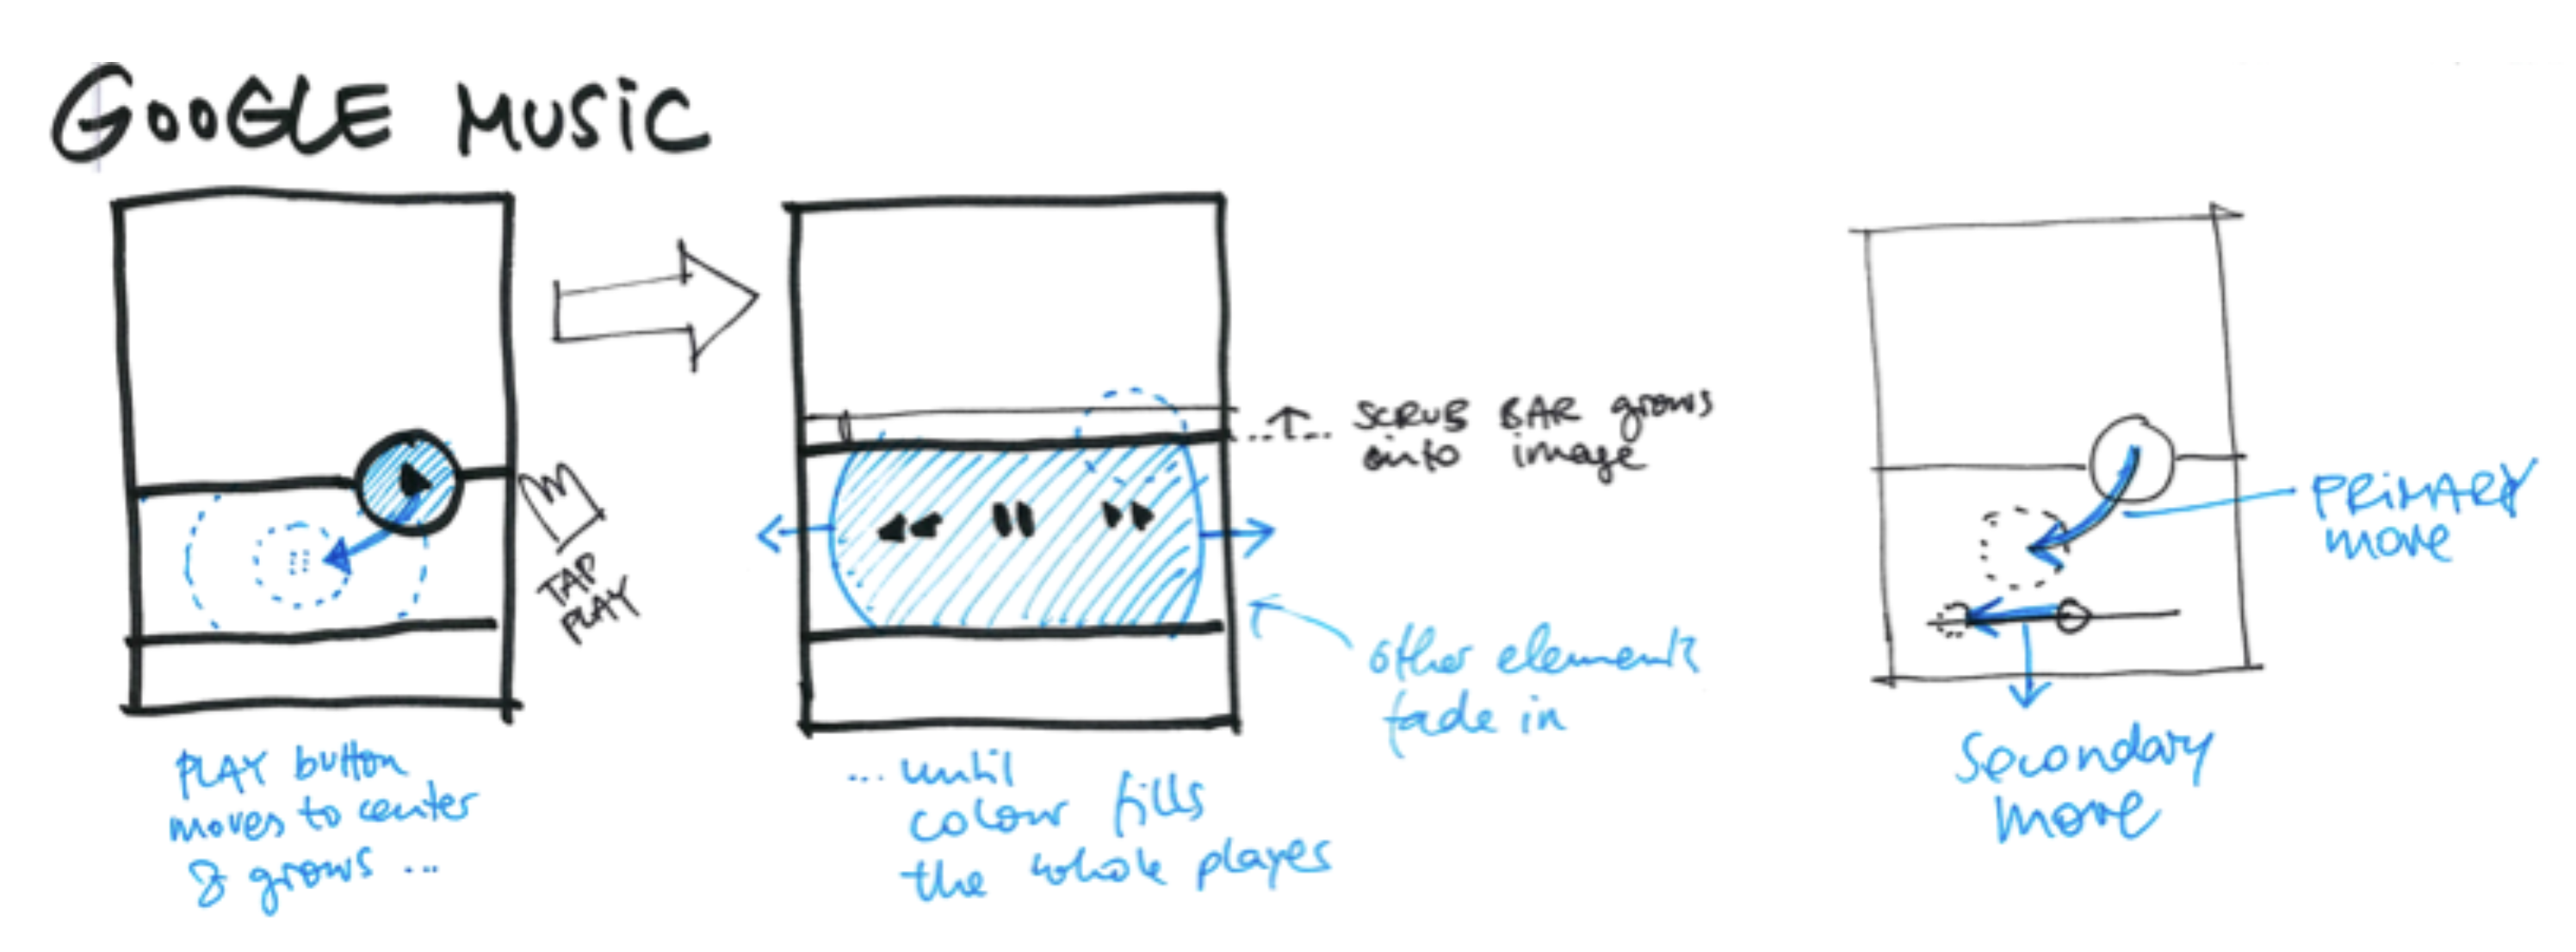 GOOGLE MUSiC
TAP
PLAY
PLAY button
moves to center
& grows ...
SCRUB BAR grows
onto image
other elements
fade in
... until
colour fills
the whole player
PRiMARY
move
Secondary
move